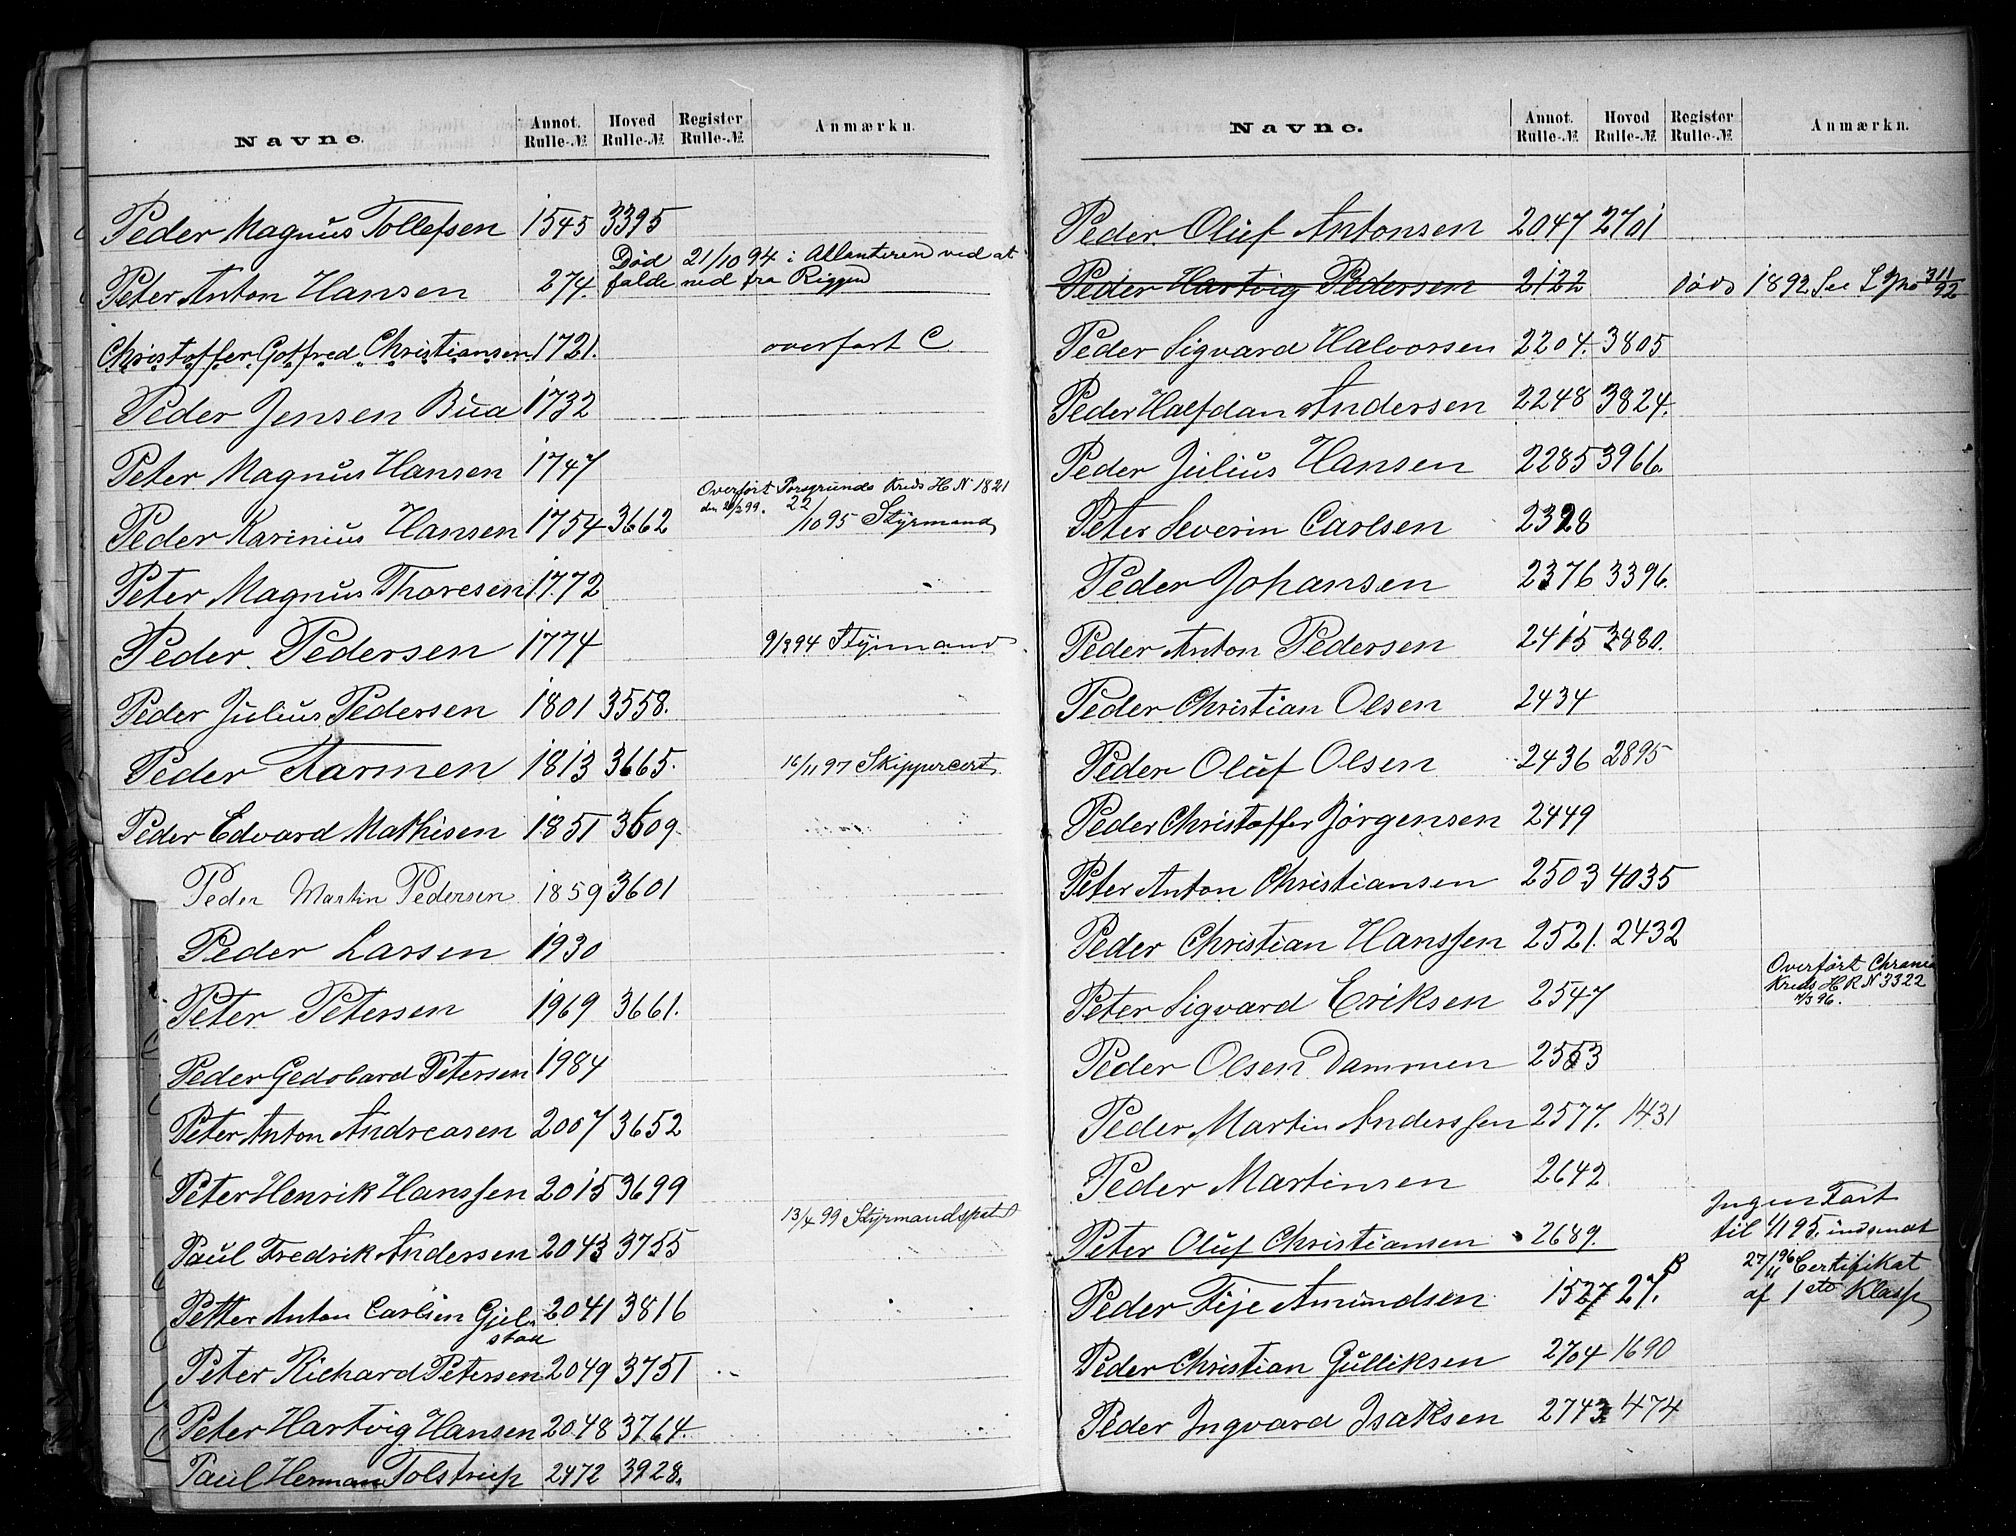 Navne. Annot. Rulle-№ Hoved Rulle-№ Register Rulle-№ Anmærkn.
Peder Magnus Tollefsen 1545 3395
Død 21/10 94 i Atlanteren ved at
Peter Anton Hansen 274. falde ned fra Riggen
Christoffer Gotfred Christiansen 1721. overført C
Peder Jensen Bua 1732
Peter Magnus Hansen 1747
Overført Porsgrunds Kreds H N 1821
Peder Karinius Hansen 1754 3662 22/10 95 Styrmand
Peter Magnus Thoresen 1772
Peder Pedersen 1774 9/3 94 Styrmand
Peder Julius Pedersen 1801 3558.
Peder Aarmen 1813 3665. 16/11 97 Skippercert
Peder Edvard Mathisen 1851 3609
Peder Martin Pedersen 1859 3601
Peder Larsen 1930
Peter Petersen 1969 3661.
Peder Petersen 1984
Peter Anton Andreasen 2007 3652
Peter Henrik Hanssen 2015 3699
13/4 99 Styrmandspat
Paul Fredrik Andersen 2043 3755
Petter Anton Carlsen Gjel- 2041 3816
stad
Peter Richard Petersen 2049 3751
Peter Hartvig Hansen 2048 3764.
Paul Herman Tolstrup 2472 3928.
Navne. Annot. Rulle-№ Hoved Rulle-№ Register Rulle-№ Anmærkn.
Peder Oluf Antonsen 2047 2701
Peder Hartvig Pedersen 2122 død 1892 See L No 311/92
Peder Sigvard Halvorsen 2204. 3805
Peder Halfdan Andersen 2248 3824.
Peder Julius Hansen 2285 3966.
Peter Severin Carlsen 2328
Peder Johansen 2376 3396.
Peder Anton Pedersen 2415 3880.
Peder Christian Olsen 2434
Peder Oluf Olsen 2436 2895
Peder Christoffer Jørgensen 2449
Peter Anton Christiansen 2503 4035
Peder Christian Hanssen 2521. 2432
Overført Chrania
Kreds H R N 3322
Peter Sigvard Eriksen 2547
Peder Olsen Dammen 2553
Peder Martin Anderssen 2577. 1431
Peder Martinsen 2642
Ingen Fart
Peter Oluf Christiansen 2689. til 1/1 95, indsendt
27/11 96 Certifikat
Peder Amundsen 1527 27. B af 1ste Klasse
Peder Christian Gulliksen 2704 1690
Peder Ingvard Isaksen 2743 474